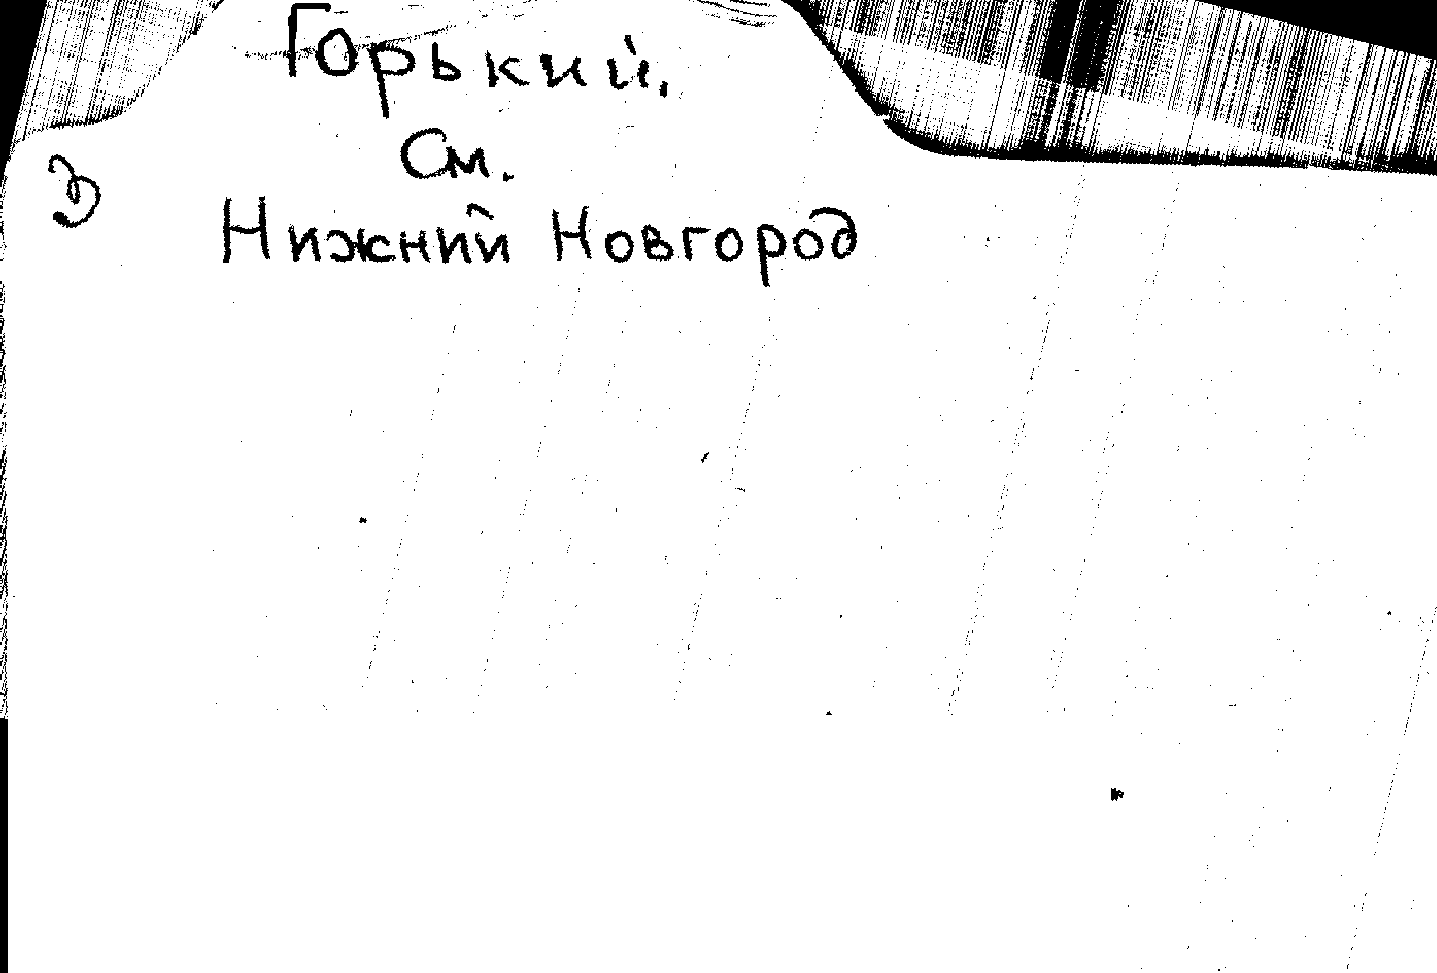 Горький.
См.
Нижний Новгород